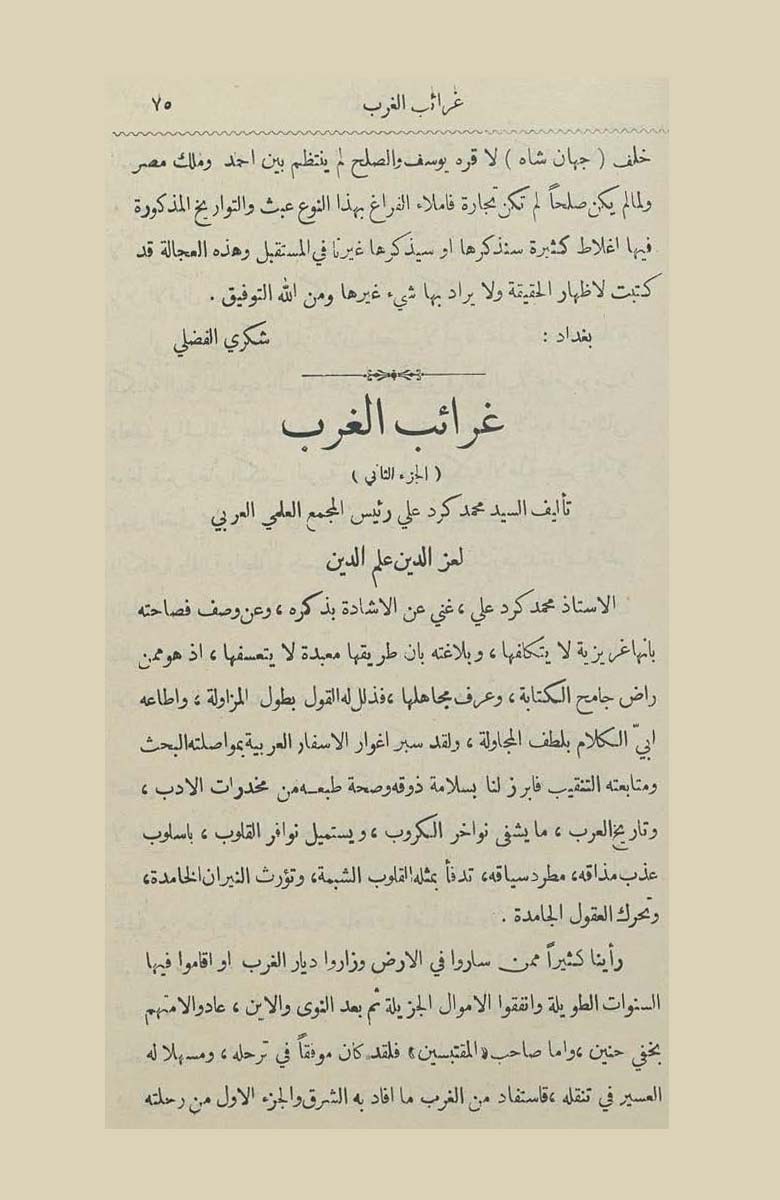 غرائب الغرب ٧٥
خلف ( جهان شاه ) لا قره يوسف والصلح لم ينتظم بين احمد وملك مصر
ولمالم يكن صلحاً لم تكن تجارة فاملاء الفراغ بهذا النوع عبث والتواريخ المذكورة
فيها اغلاط كثيرة سنذكرها او سيذكرها غيرنا في المستقبل وهذه العجالة قد
كتبت لاظهار الحقيقة ولا يراد بها شيء غيرها ومن الله التوفيق .
بغداد : شكري الفضلي
غرائب الغرب
( الجزء الثاني )
تأليف السيد محمد كرد علي رئيس المجمع العلمي العربي
لعز الدين علم الدين
الاستاذ محمد كرد علي ، غني عن الاشادة بذكره ، وعن وصف فصاحته
بانها غريزية لا يتكلفها ، وبلاغته بان طريقها معبدة لا يتعسفها ، اذ هو ممن
راض جامح الكتابة ، وعرف مجاهلها ، فذلل له القول بطول المزاولة ، واطاعه
ابيّ الكلام بلطف المجاولة ، ولقد سبر اغوار الاسفار العربية بمواصلته البحث
ومتابعته التنقيب فابرز لنا بسلامة ذوقه وصحة طبعه من مخدرات الادب ،
وتاريخ العرب ، ما يشفى نواخر الكروب ، ويستميل نوافر القلوب ، باسلوب
عذب مذاقه، مطرد سياقه، تدفأ بمثله القلوب الشبمة، وتؤرث النيران الخامدة،
وتحرك العقول الجامدة .
رأينا كثيراً ممن ساروا في الارض وزاروا ديار الغرب او اقاموا فيها
السنوات الطويلة وانفقوا الاموال الجزيلة ثم بعد النوى والاين ، عادوالامتهم
بخفي حنين ، واما صاحب «المقتبسين» فلقد كان موفقاً في ترحله ، ومسهلا له
العسير في تنقله ، فاستفاد من الغرب ما افاد به الشرق والجزء الاول من رحلته